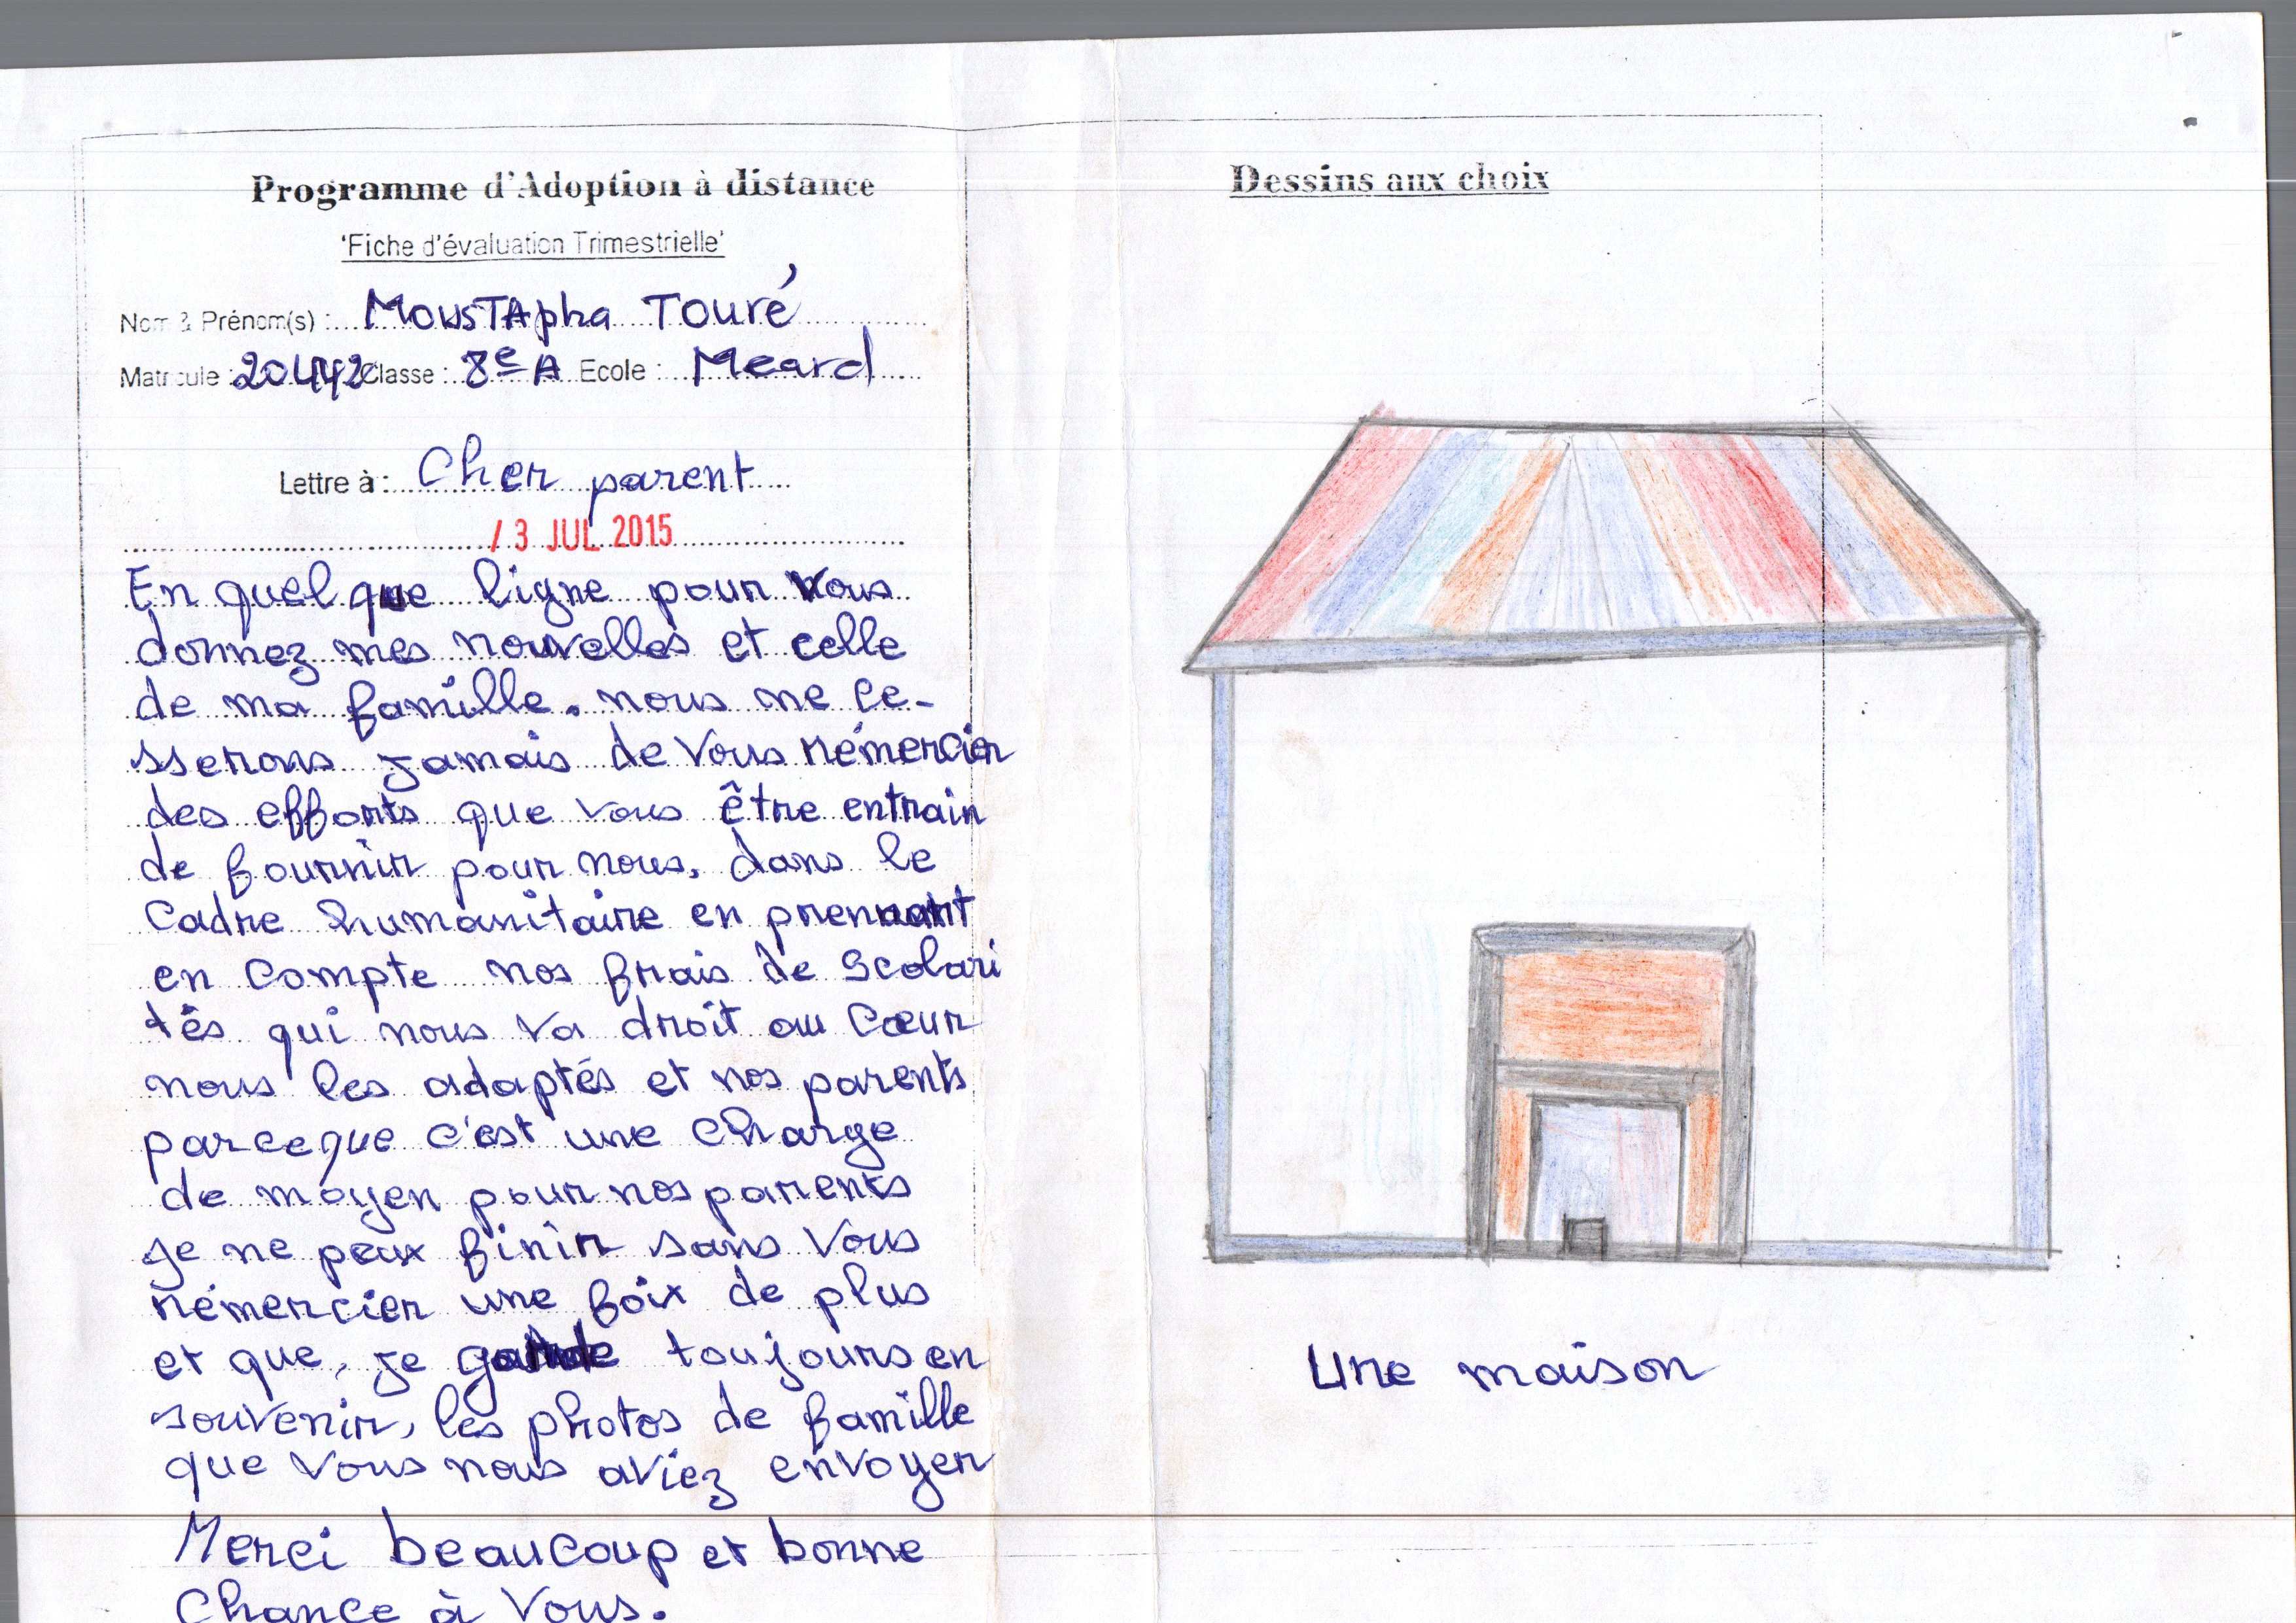 Programme d'Adoption à distance
'Fiche d'évaluation Trimestrielle'
Nom & Prénom(s) : MousTApha Touré
Matricule : 20442 Classe : 8e A Ecole : Meard
Lettre à : Cher parent
/ 3 JUL 2015
En quelque ligne pour vous
donnez mes nouvelles et celle
de ma famille. nous ne ce-
sserons jamais de vous rémercier
des efforts que vous être entrain
de fournir pour nous, dans le
Cadre humanitaire en prennant
en compte nos frais de scolari
tés qui nous va droit au cœur
nous les adaptés et nos parents
parceque c'est une charge
de moyen pour nos parents
je ne peux finir sans vous
rémercier une foix de plus
et que, je garde toujours en
souvenir, les photos de famille
que vous nous aviez envoyer
Merci beaucoup et bonne
Chance à Vous.
Dessins aux choix
Une maison